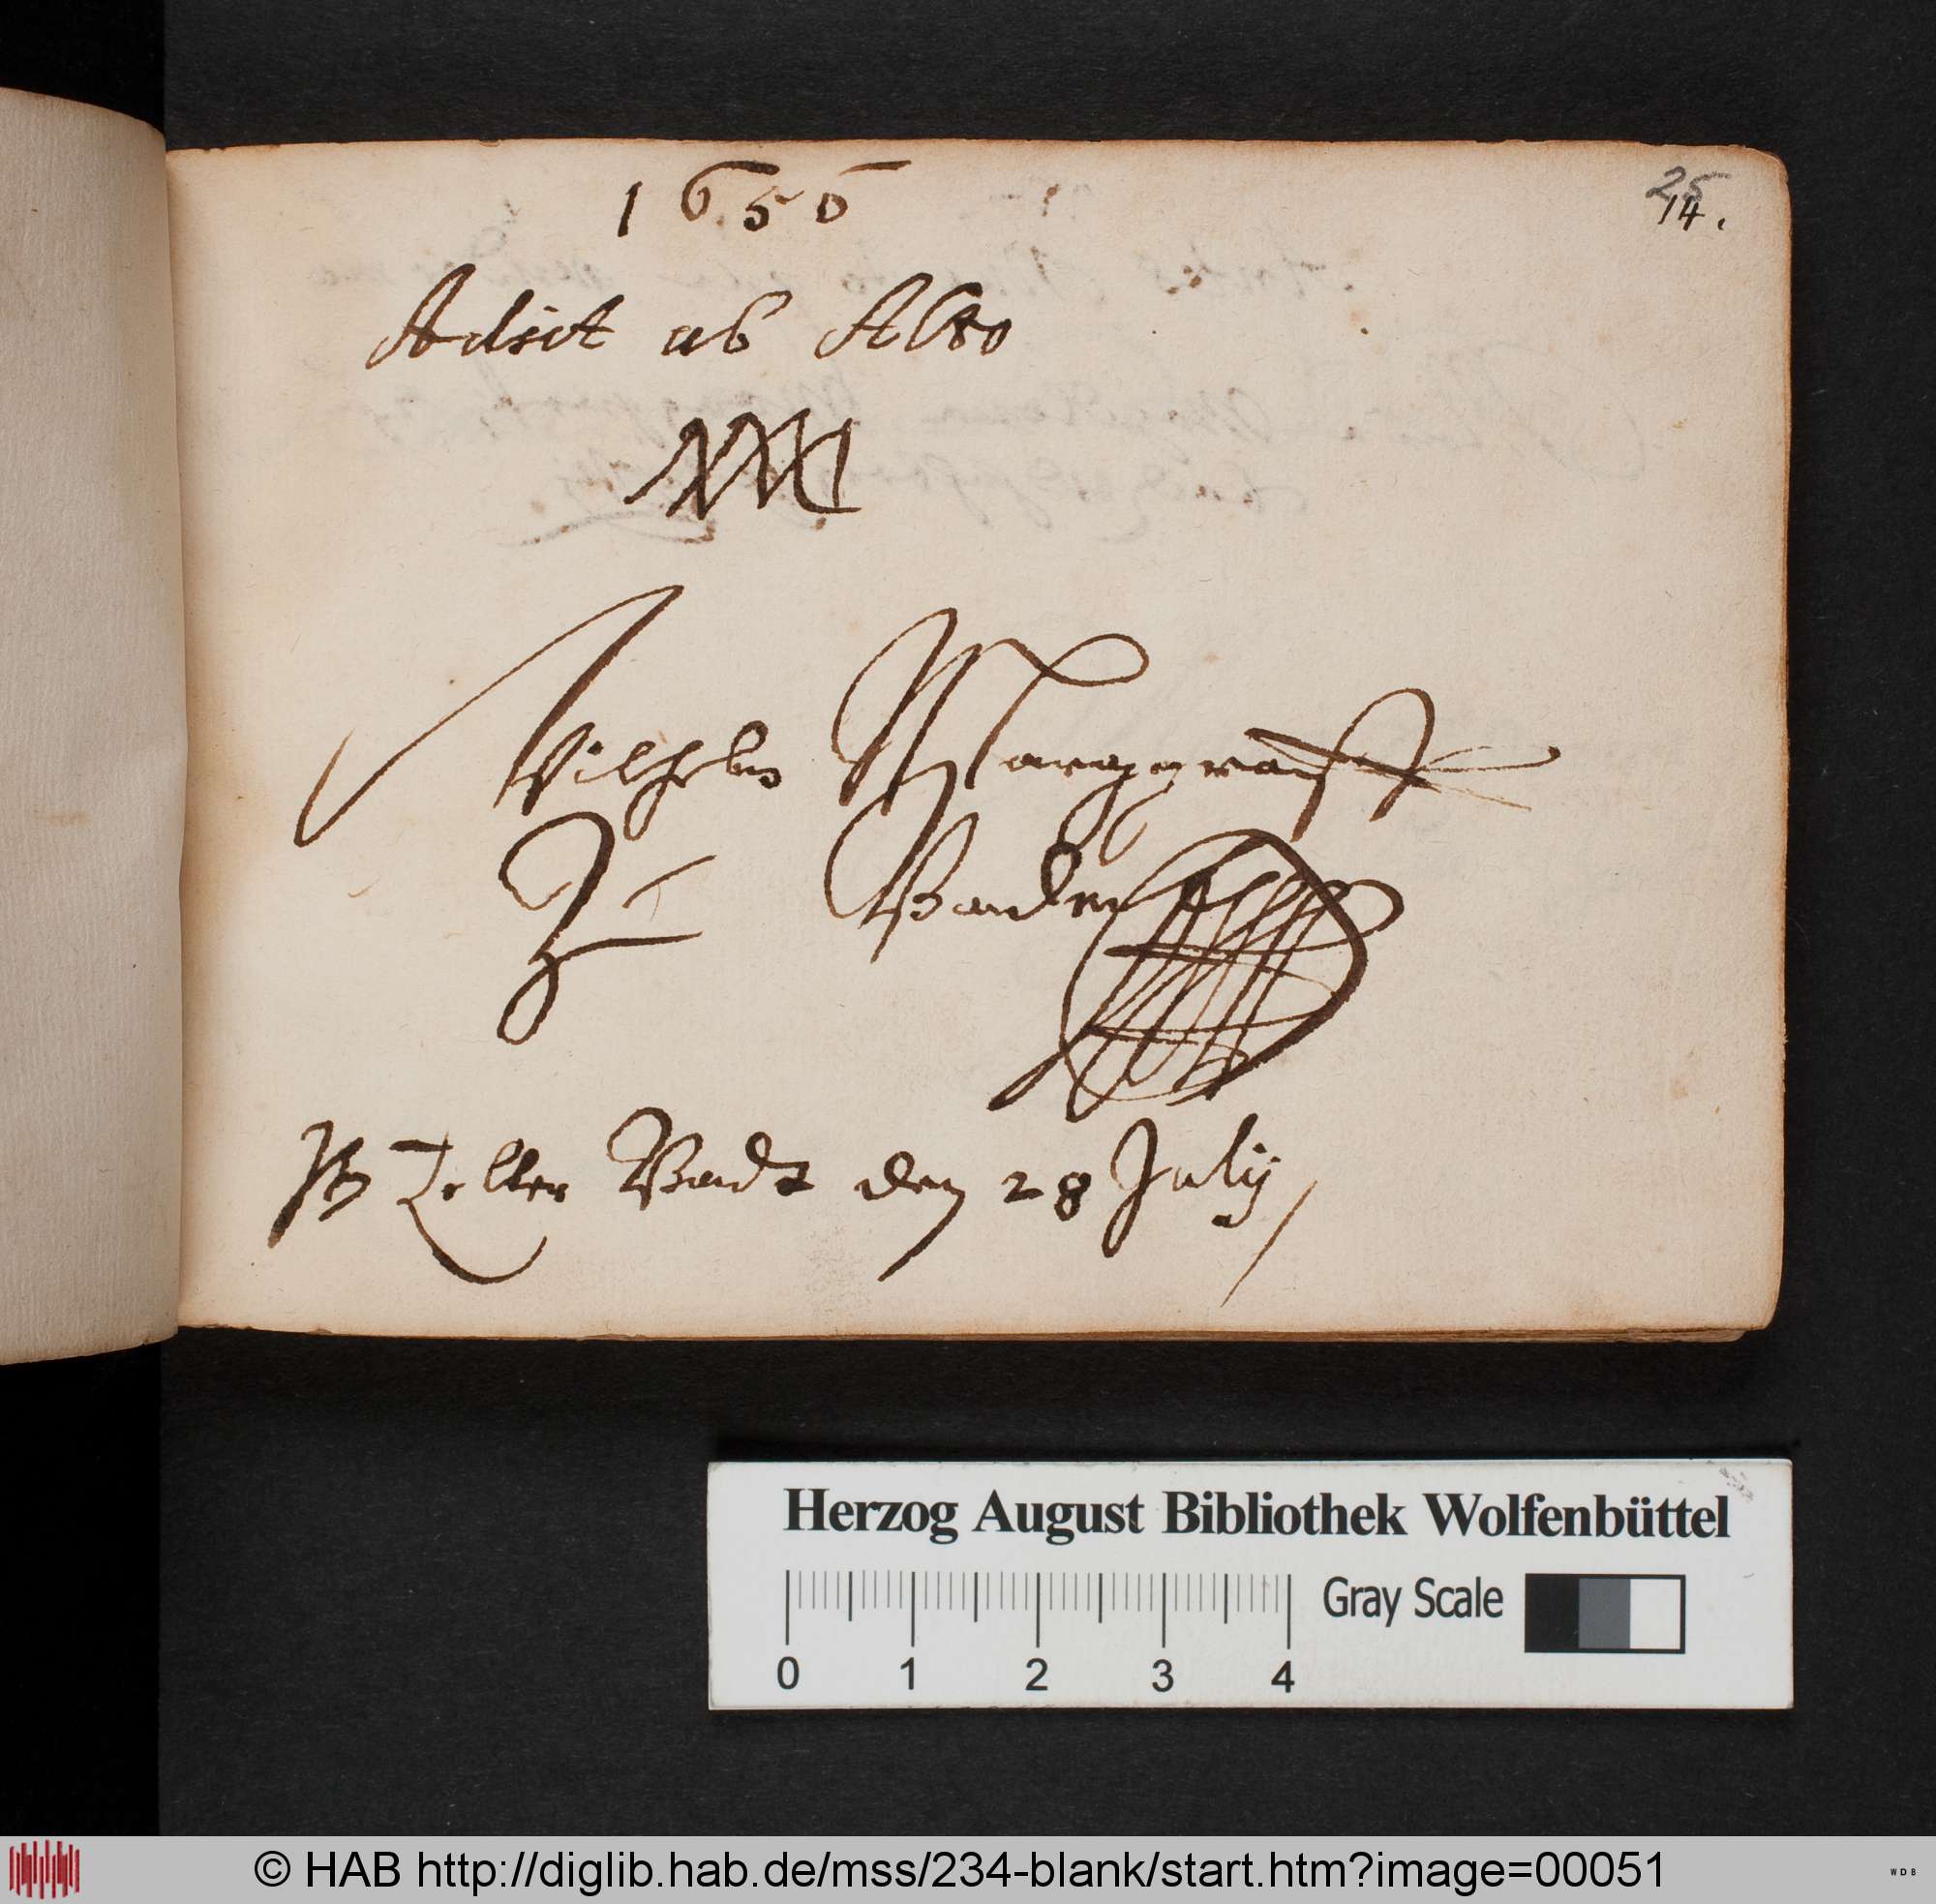 1656
25
14.
Adsit ab Alto
Wilhelm Marggraff
Zu Baden
In Zeller Badt den 28 July
Herzog August Bibliothek Wolfenbüttel
Gray Scale
0 1 2 3 4
© HAB http://diglib.hab.de/mss/234-blank/start.htm?image=00051
WDB